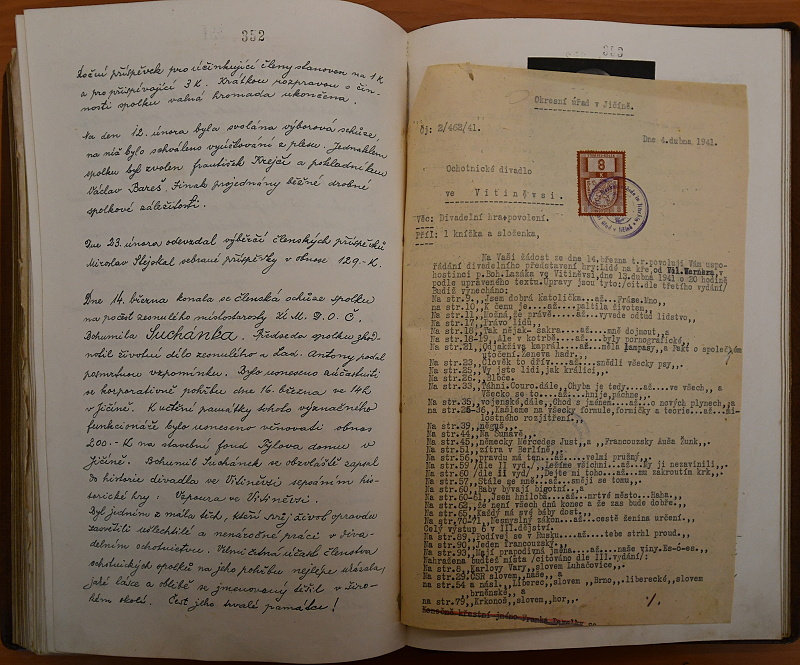 352
Roční příspěvek pro účinkující členy stanoven na 1 K
a pro přispívající 3 K. Krátkou rozpravou o čin-
nosti spolku valná hromada ukončena.
Na den 12. února byla svolána výborová schůze,
na níž bylo schváleno vyúčtování z plesu. Jednatelem
spolku byl zvolen František Krejčí a pokladníkem
Václav Bareš. Jinak projednány běžné drobné
spolkové záležitosti.
Dne 23. února odevzdal výběrčí členských příspěvků
Miroslav Stejskal sebrané příspěvky v obnose 129.-K.
Dne 14. března konala se členská schůze spolku
na počest zesnulého místostarosty Ú. M. D. O. Č.
Bohumila Suchánka. Předseda spolku zhod-
notil životní dílo zesnulého a Lad. Antony podal
posmrtnou vzpomínku. Bylo usneseno zúčastniti
se korporativně pohřbu dne 16. března ve 14 h
v Jičíně. K uctění památky tohoto význačného
funkcionáře bylo usneseno věnovati obnos
200.- K na stavební fond Tylova domu v
Jičíně. Bohumil Suchánek se obzvláště zapsal
do historie divadla ve Vitiněvsi sepsáním his-
torické hry: Vzpoura ve Vitiněvsi.
Byl jedním z mála těch, kteří svůj život opravdu
zasvětili ušlechtilé a nenáročné práci v diva-
delním ochotnictvu. Velmi četná účast členstva
ochotnických spolků na jeho pohřbu nejlépe ukázala,
jaké lásce a oblibě se jmenovaný těšil v širo-
kém okolí. Čest jeho trvalé památce!
353
Okresní úřad v Jičíně.
Čj: 2/462/41.
Dne 4.dubna 1941.
8
K
Ochotnické divadlo
ve Vitiněvsi.
Věc: Divadelní hra-povolení.
Příl: 1 knížka a složenka,
Na Vaši žádost ze dne 14.března t.r.povoluji Vám uspo-
řádání divadelního představení hry:Lidé na kře,od Vil.Wernera,v
hostinci p.Boh.Laňky vg Vitiněvsi,dne 13.dubna 1941 o 20 hodině
podle upraveného textu.Úpravy jsou tyto:/cit.dle třetího vydání/
Budiž vynecháno:
Na str.9,,Jsem dobrá katolička...až...Práme.Kno,,
na str.10,,K čemu je....až.....palčila životem,,
Na str.11,,Možná,že právě....až...vyvede odtud lidstvo,,
na str.17,,Právo lidí,,
na str.18,,Tak nějak- sakra....až...mně dojmout,,a
na str.18-19,,Ale v kotrbě...až...byly pornografické,,
na str.21,,Odjakživa kaprál...až...měla lampasy,,a Pakt o společném
utočení.Ženeva hadr.,,
na str.23,,Člověk to dřív....až...snědli všecky psy,,
na str.25,,Vy jste lidi,jak králíci,,
na str.26,,Blbče.
na str.33,,Táhni.Couro.dále,,Chyba je tedy....až....ve všech,,a
Všecko se to.....až...hnije,páchne,,
na str.35,,vojenské,dále,,Chod s jaměem....až...o nových plynech,,a
na str.25-36,,Kašleme na všecky formule,formičky a teorie...až..mi-
lostného rozjitření,,.
Na str.39,,něguš,,.
Na str.44,,Na Šumavě,,.
Na str.45,,německy Mercedes Just,,a ,,Francouzsky Auša Žunk,,.
Na str.51,,zítra v Berlíně,,.
Na str.56,,pravdu má ten...až...velmi pružný,,.
Na str.59/dle II vyd./,,Ležíme všichni...až...My ji nezavinili,,.
Na str.60/dle II vyd/,,Dejte ni toho...až...mu zákroutím krk,,.
Na str.57,,Stále se mně...až...směji se tomu,,.
Na str.60,,Baby bývají bigotní,,a
na str.60-61,,Jsem hniloba...až...mrtvé město...Haba,,.
Na str.62,,že není všech dnů konec a že zas bude dobře.
Na str.65,,Každý má své báby dost,,.
Na str.70-71,,Nesmyslný zákon...až...cestě ženina určení.
Celý výstup 6 v III.dějství.
Na str.89,,Podívej se v Rusku...až...tebe strhl proud..
Na str.90,,Jeden Francouzský,,.
Na str.93,,Naši prapodivná jména...až...naše viny.Es-ó-es.,,.
Nahražena buďtež místa /citováno dle III.vydání/:
Na str.8,,Karlovy Vary,,slovem Luhačovice,,.
Na str.29.ČSR slovem,,naše,,a
na str.54 a násl.,,Liberec,,slovem ,,Brno,,liberecké,,slovem
,,brněnské,,a
na str.79,,Krkonoš,,slovem,,hor,,.